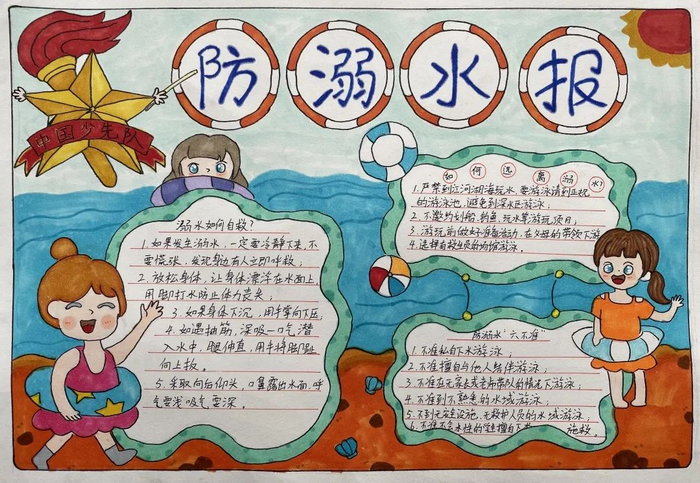 防溺水报
中国少先队
溺水如何自救?
1.如果发生溺水,一定要冷静下来,不
要慌张,发现身边有人立即呼救;
2.放松身体,让身体漂浮在水面上,
用脚打水防止体力丧失;
3.如果身体下沉,用手掌向下压;
4.如遇抽筋,深吸一口气潜
入水中,腿伸直,用手将脚趾
向上扳。
5.采取向后仰头,口鼻露出水面,呼
气要浅吸气要深。
如何远离溺水?
1.严禁到江河湖海玩水,要游泳请到正规
的游泳池,避免到深水区游泳。
2.不做约划船、钓鱼、玩水等游玩项目;
3.游玩前做好准备活动,在父母的带领下游
4.选择有救生员的场馆游泳。
防溺水“六不准”
1.不准私自下水游泳;
2.不准擅自与他人结伴游泳;
3.不准在无家长或老师带队的情况下游泳;
4.不准到不熟悉的水域游泳;
5.不到无安全设施、无救护人员的水域游泳;
6.不准不会水性的学生擅自下水施救。